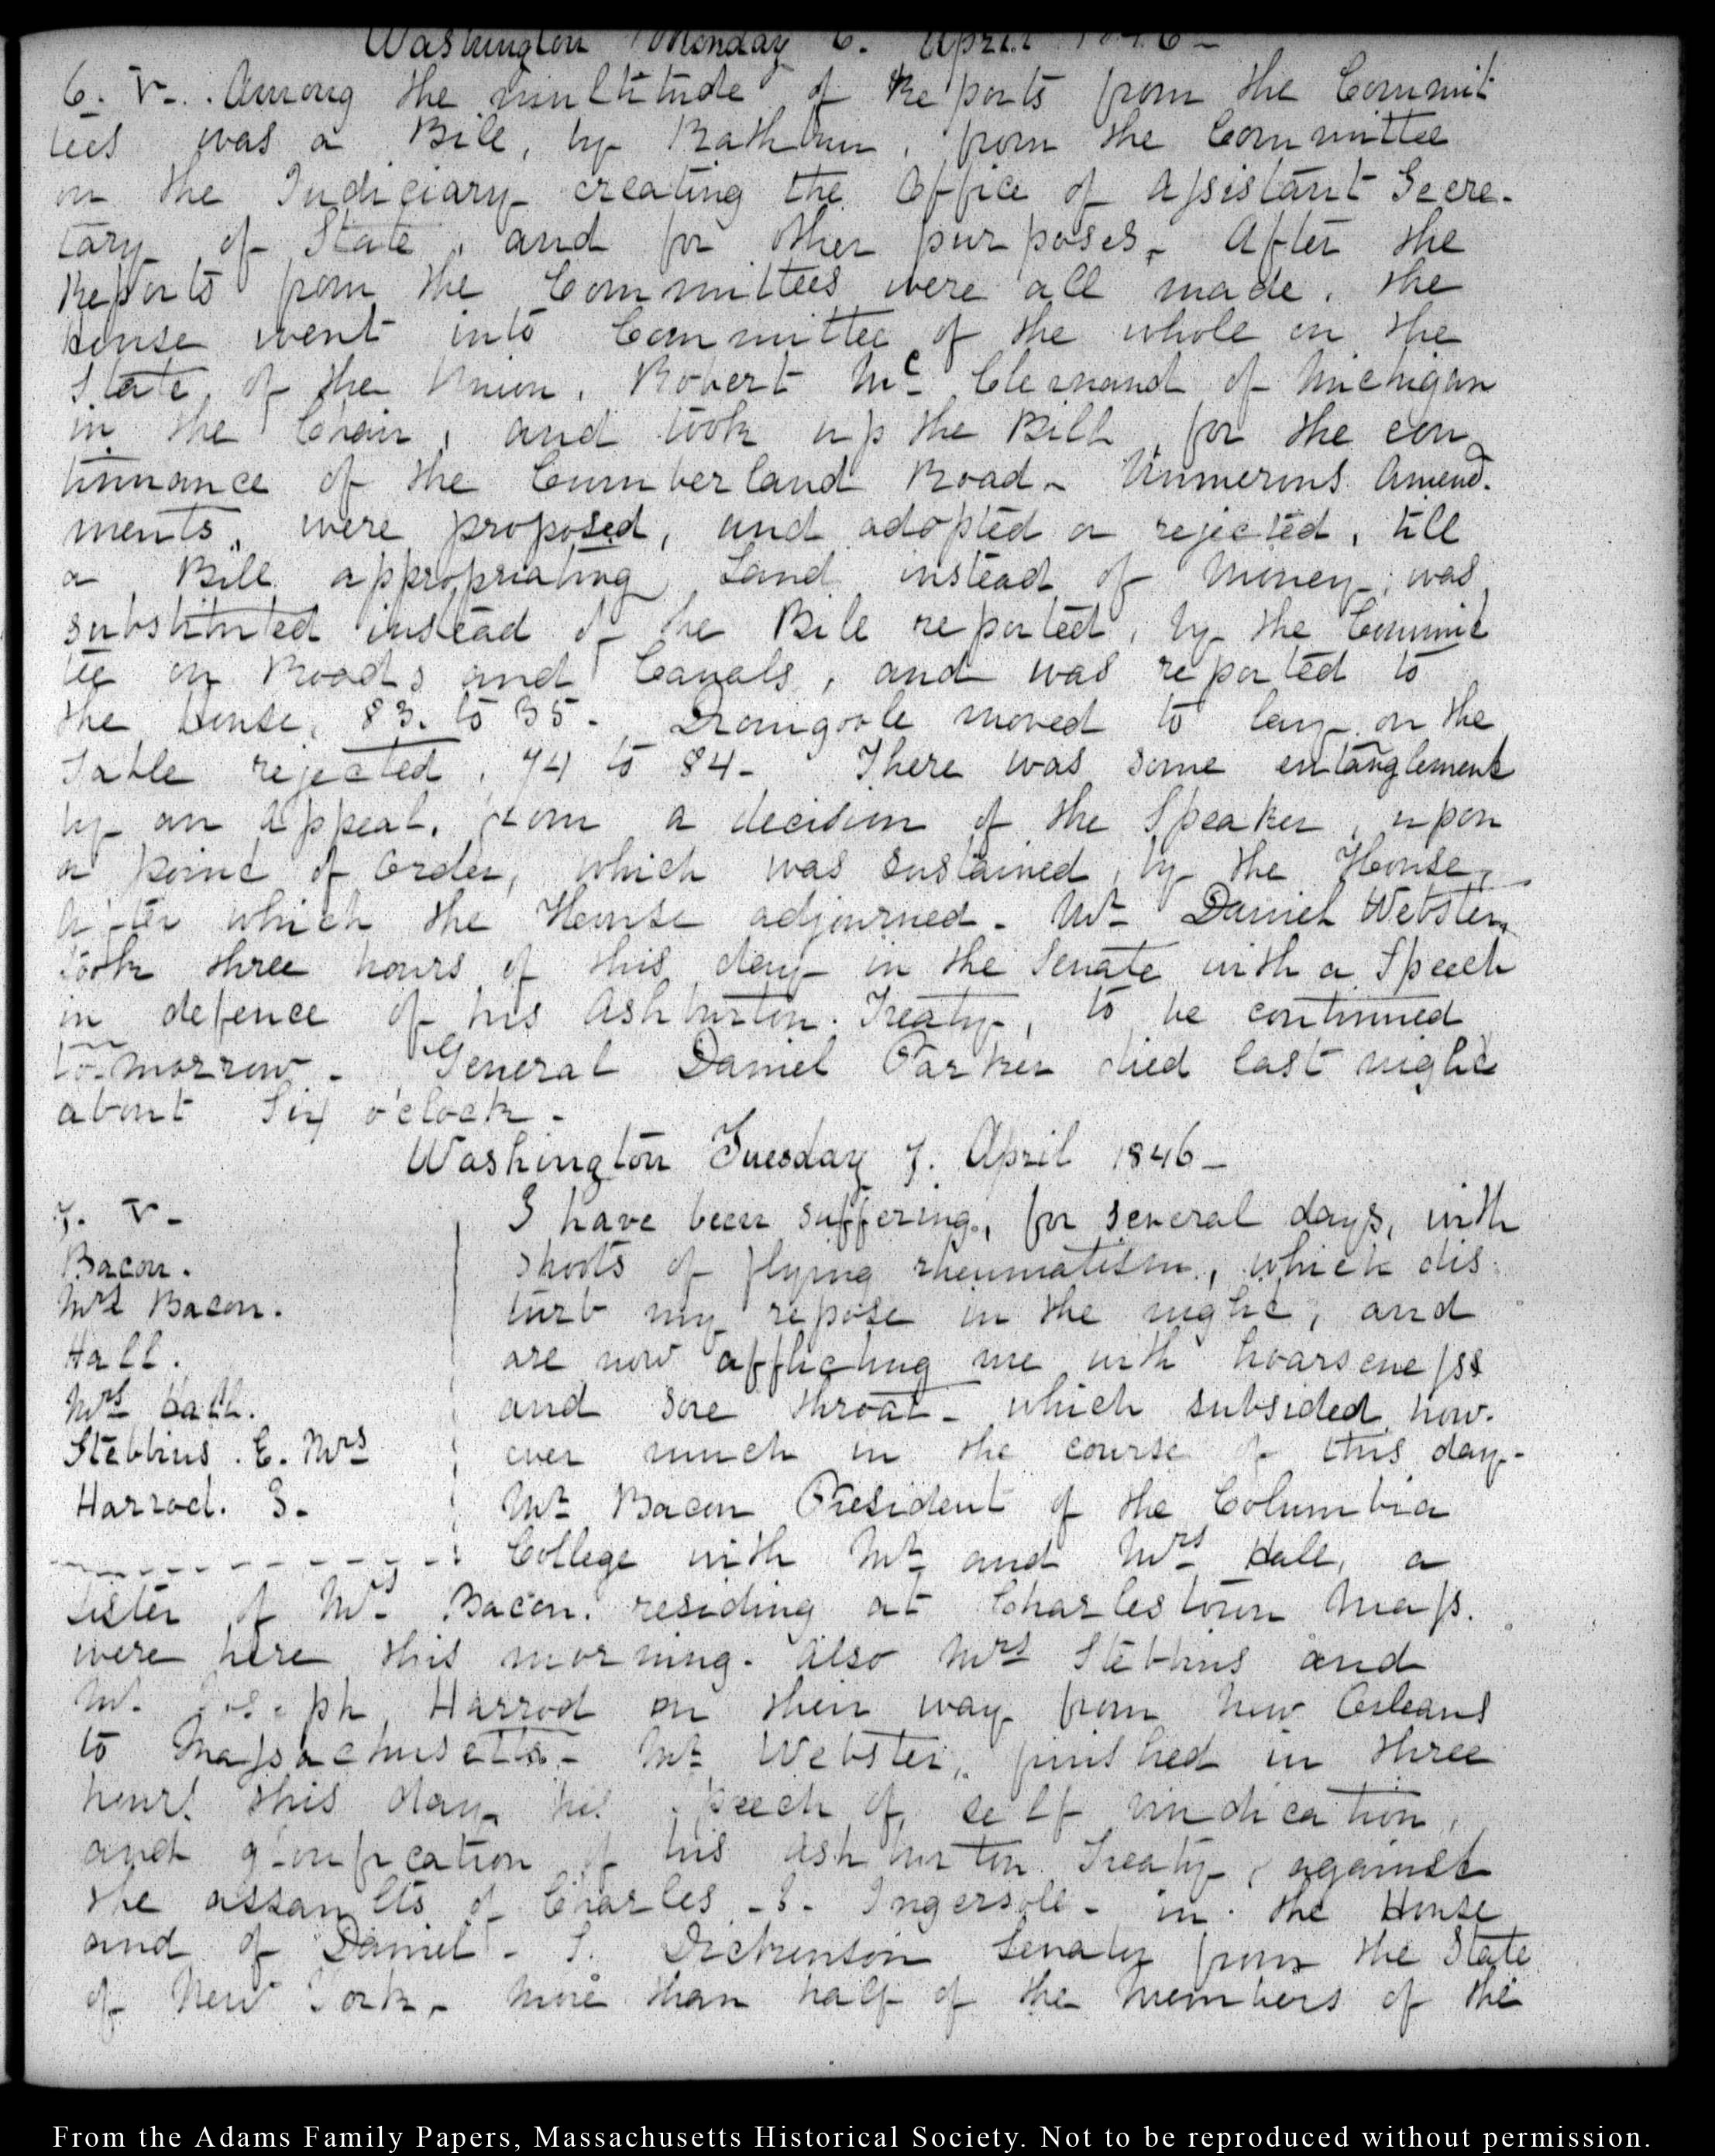 Washington Monday 6. April 1846-
6. V-. Among the multitude of Reports from the Commit
tees was a Bill, by Rathbun, from the Committee
on the Judiciary creating the Office of Assistant Secre-
tary of State, and for other purposes- After the
Reports from the Committees were all made, the
House went into Committee of the whole on the
State of the Union, Robert Mc Clernand of Michigan
in the Chair, and took up the Bill, for the con
tinuance of the Cumberland Road- Numerous Amend-
ments, were proposed, and adopted or rejected, till
a Bill appropriating Land instead of Money, was
substituted instead of the Bill reported, by the Commit
tee on Roads and Canals, and was reported to
the House, 83. to 35- Dromgoole moved to lay on the
Table rejected, 74 to 84- There was some entanglement
by an Appeal, from a decision of the Speaker, upon
a point of Order, which was sustained, by the House,
after which the House adjourned- Mr Daniel Webster,
took three hours of this day in the Senate with a Speech
in defence of his Ashburton Treaty, to be continued
to-morrow- General Daniel Parker died last night
about Six o'clock-
Washington Tuesday 7. April 1846-
7. V-
Bacon.
Mrs Bacon.
Hall.
Mrs Hall.
Stebbins. E. Mrs
Harrod. S-
I have been suffering, for several days, with
shoots of flying rheumatism, which dis
turb my repose in the night, and
are now afflicting me with hoarseness
and sore throat- which subsided how-
ever much in the course of this day-
Mr Bacon President of the Columbia
College with Mr and Mrs Hall, a
sister of Mrs Bacon. residing at Charlestown Mass.
were here this morning- also Mrs Stebbins and
Mr Joseph Harrod on their way from New Orleans
to Massachusetts- Mr Webster, finished in three
hours this day his speech of self vindication,
and glorification of his Ashburton Treaty, against
the assaults of Charles -J- Ingersoll- in the House
and of Daniel- S. Dickinson Senator from the State
of New York- More than half of the Members of the
From the Adams Family Papers, Massachusetts Historical Society. Not to be reproduced without permission.